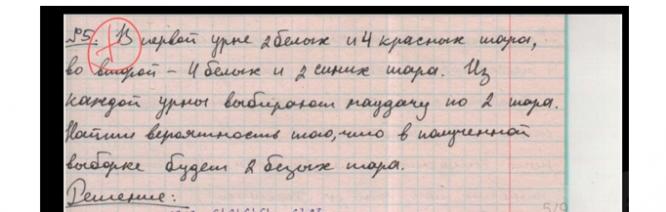 №5. В первой урне 2 белых и 4 красных шара,
во второй – 4 белых и 2 синих шара. Из
каждой урны выбирают наудачу по 2 шара.
Найти вероятность того, что в полученной
выборке будет 2 белых шара.
Решение:
5/9